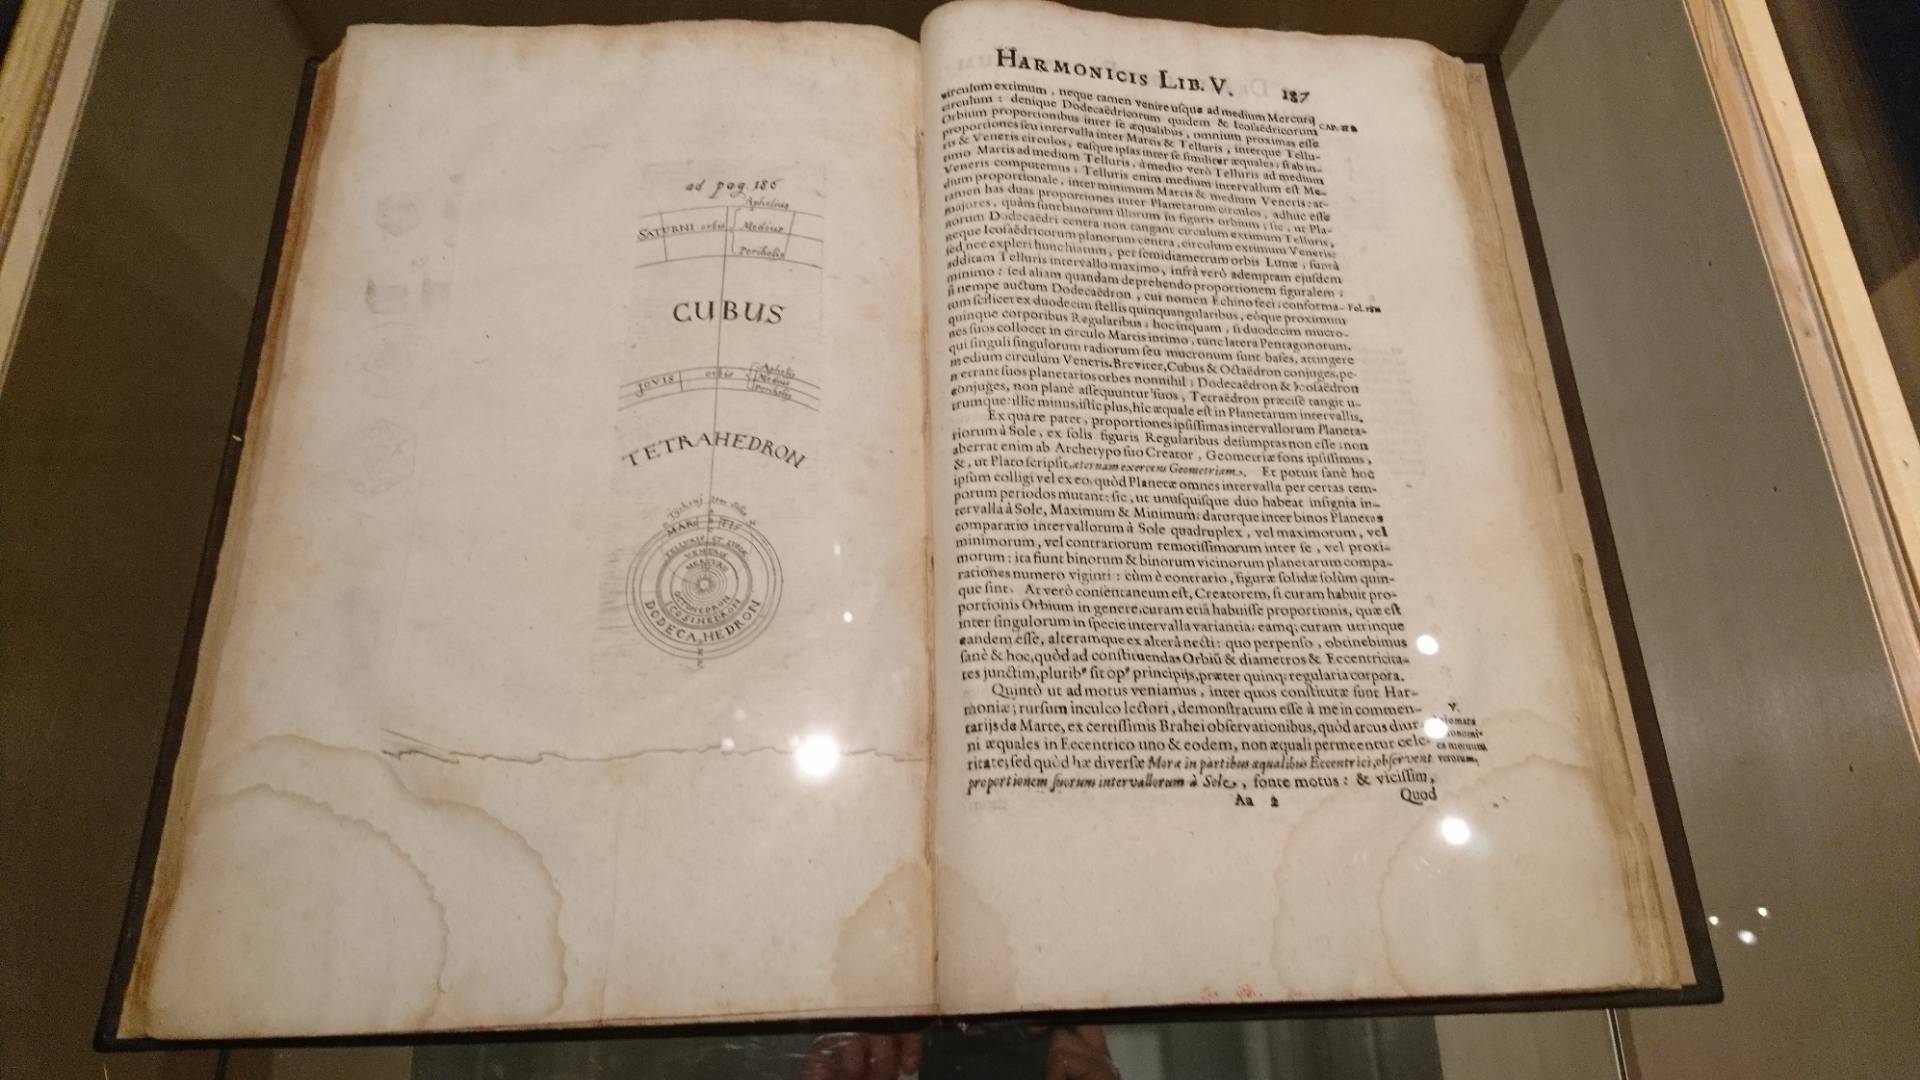 ad pag. 186
Aphelius
SATURNI orbis Medius
Perihelis
CUBUS
JOVIS orbis Aphelis
Medius
Perihelis
TETRAHEDRON
MARTIS
TELLURIS ET LUNÆ
VENERIS
MERCURII
OCTOHEDRON
ICOSIHEDRON
DODECAHEDRON
HARMONICIS LIB. V. 187
circulum extimum, neque tamen venire uſque ad medium Mercurij
circulum: denique Dodecaëdricorum quidem & Icoſaëdricorum CAP. III
Orbium proportionibus inter ſe æqualibus, omnium proximas eſſe
proportiones ſeu intervalla inter Martis & Telluris, interque Tellu-
ris & Veneris circulos, eaſque ipſas inter ſe ſimiliter æquales; ſi ab in-
timo Martis ad medium Telluris, à medio verò Telluris ad medium
Veneris computemus: Telluris enim medium intervallum eſt Me-
dium proportionale, inter minimum Martis & medium Veneris: at-
tamen has duas proportiones inter Planetarum circulos, adhuc eſſe
majores, quàm ſunt binorum illorum in figuris orbium; ſic, ut Pla-
norum Dodecaëdri centra non tangant circulum extimum Telluris,
neque Icoſaëdricorum planorum centra, circulum extimum Veneris:
ſed nec expleri hunc hiatum, per ſemidiametrum orbis Lunæ, ſuprà
additam Telluris intervallo maximo, infrà verò ademptam ejuſdem
minimo: ſed aliam quandam deprehendo proportionem figuralem:
ſi nempe auctum Dodecaëdron, cui nomen Echino feci: conforma-
tum ſcilicet ex duodecim ſtellis quinquangularibus, eòque proximum
quinque corporibus Regularibus; hoc inquam, ſi duodecim mucro-
nes ſuos collocet in circulo Martis intimo, tunc latera Pentagonorum,
qui ſinguli ſingulorum radiorum ſeu mucronum ſunt baſes, attingere
medium circulum Veneris. Breviter, Cubus & Octaëdron conjuges, pe-
nerrant ſuos planetarios orbes nonnihil; Dodecaëdron & Icoſaëdron
conjuges, non planè aſſequuntur ſuos, Tetraëdron præciſè tangit u-
trumque: illic minus, iſtic plus, hic æquale eſt in Planetarum intervallis.
Ex qua re patet, proportiones ipſiſſimas intervallorum Planeta-
riorum à Sole, ex ſolis figuris Regularibus deſumptas non eſſe: non
aberrat enim ab Archetypo ſuo Creator, Geometriæ fons ipſiſſimus,
&, ut Plato ſcripſit, æternam exercens Geometriam. Et potuit ſanè hoc
ipſum colligi vel ex eo, quòd Planetæ omnes intervalla per certas tem-
porum periodos mutant: ſic, ut unuſquiſque duo habeat inſignia in-
tervalla à Sole, Maximum & Minimum: daturque inter binos Planetas
comparatio intervallorum à Sole quadruplex, vel maximorum, vel
minimorum, vel contrariorum remotiſſimorum inter ſe, vel proxi-
morum: ita fiunt binorum & binorum vicinorum planetarum compa-
rationes numero viginti: cùm è contrario, figuræ ſolidæ ſolùm quin-
que ſint. At verò conſentaneum eſt, Creatorem, ſi curam habuit pro-
portionis Orbium in genere, curam etiā habuiſſe proportionis, quæ eſt
inter ſingulorum in ſpecie intervalla variantia: eamq; curam utrinque
eandem eſſe, alteramque ex alterâ necti: quo perpenſo, obtinebimus
ſanè & hoc, quòd ad conſtituendas Orbiũ & diametros & Eccentricita-
tes junctim, pluribꝰ ſit opꝰ principijs, præter quinq; regularia corpora.
Quintò ut ad motus veniamus, inter quos conſtitutæ ſunt Har- V.
moniæ; rurſum inculco lectori, demonſtratum eſſe à me in commen-
tarijs de Marte, ex certiſſimis Brahei obſervationibus, quòd arcus diur-
ni æquales in Eccentrico uno & eodem, non æquali permeentur cele-
ritate; ſed quòd hæ diverſæ Moræ in partibus æqualibus Eccentrici, obſervent
proportionem ſuorum intervallorum à Sole, fonte motus: & viciſſim,
Aa 2 Quod